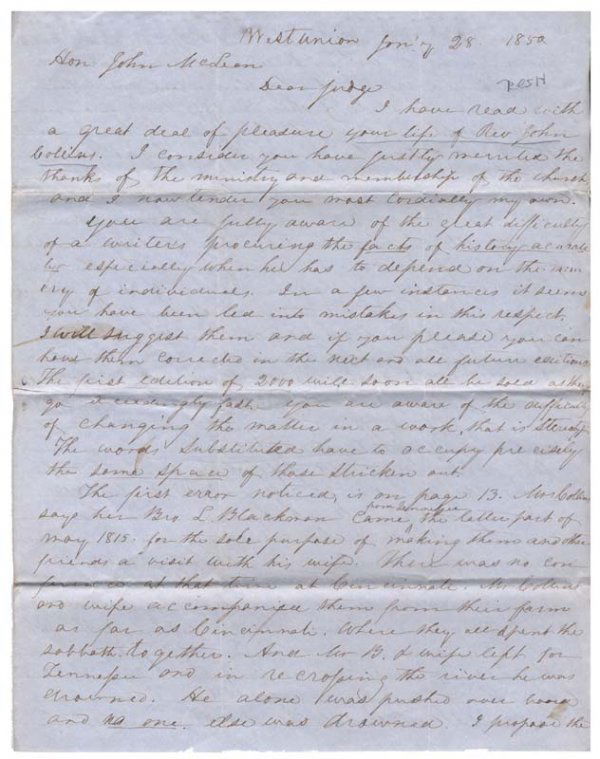 West Union Jan'y 28. 1850
Hon John McLean
Dear judge
I have read with
a great deal of pleasure your life of Rev John
Collins. I consider you have justly merrited the
thanks of the ministry and membership of the church
and I now tender you most cordially my own.
You are fully aware of the great difficulty
of a writers procuring the facts of history acurate
ly especially when he has to depend on the mem
ory of individuals. In a few instances it seems
you have been led into mistakes in this respect,
I will suggest them and if you please you can
have them corrected in the next and all future editions
The first edition of 2000 will soon all be sold as they
go exceedingly fast. you are aware of the difficulty
of changing the matter in a work, that is
The words substituted have to occupy precisely
the same space of those stricken out.
The first error noticed, is on page 13. Mrs Collins
says her Bro L. Blackman came from Tennessee the latter part of
may 1815. for the sole purpose of making them and other
friends a visit with his wife. There was no con
ference at that time at Cincinnati. Mr Collins
and wife accompanied them from their farm
as far as Cincinnati. Where they all spent the
sabbath together. And Mr B. & wife left for
Tennessee and in recrossing the river he was
drowned. He alone was pushed over board
and no one else was drowned. I propose the